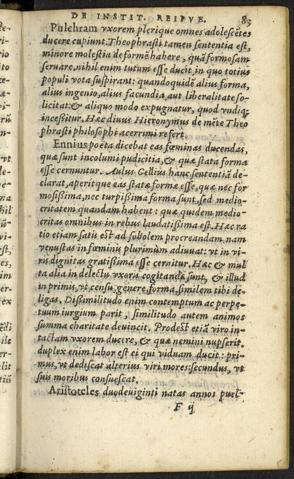 DE INSTIT. REIPVB. 83
Pulchram vxorem plerique omnes adolescētes
ducere cupiunt. Theophrasti tamen sententia est,
minore molestia deformē habere, quā formosam
seruare. nihil enim tutum esse ducit, in quo totius
populi vota suspirant: quandoquidē alius forma,
alius ingenio, alius facundia, aut liberalitate sol
licitat: & aliquo modo expugnatur, quod vndiq;
incessitur. Hæc diuus Hieronymus de mēte Theo
phrasti philosophi acerrimi refert.
Ennius poëta dicebat eas fœminas ducendas,
quæ sunt incolumi pudicitia, & quæ stata forma
esse cernuntur. Aulus Gellius hanc sententiā de-
clarat, aperitque eas statæ formæ esse, quæ nec for
mosissima, nec turpissima forma sunt, sed medio-
critatem quandam habent: quæ quidem medio-
critas omnibus in rebus laudatissima est. Hæc ra
tio etiam satis est ad sobolem procreandam, nam
venustas in fœminis plurimùm adiuuat: vt in vi-
ris dignitas gratissima esse cernitur. Hæc & mul
ta alia in delectu vxoris cogitanda sunt, & illud
in primis, vt censu, genere, forma, similem tibi de-
ligas. Dissimilitudo enim contemptum ac perpe-
tuum iurgium parit, similitudo autem animos
summa charitate deuincit. Prodest etiā viro in-
tactam vxorem ducere, & quæ nemini nupserit.
duplex enim labor est ei qui viduam ducit: pri-
mus, vt dediscat alterius viri mores: secundus, vt
suis moribus consuescat.
Aristoteles duodeuiginti natas annos puel-
F ij